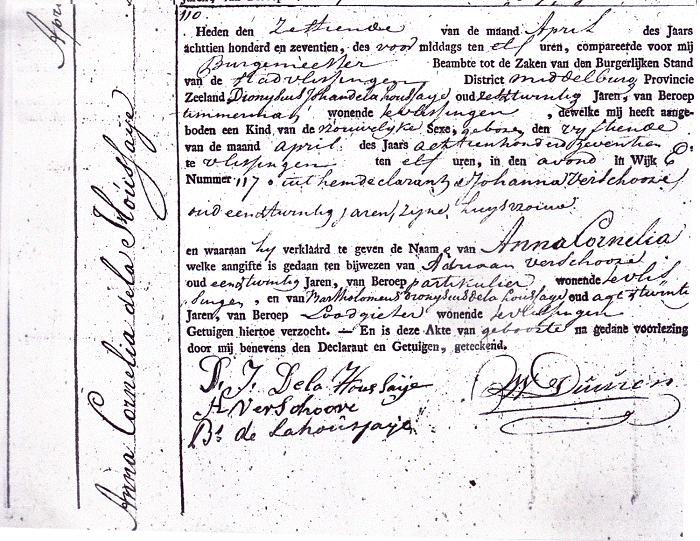 110.
Heden den Zestiende van de maand April des Jaars
achttien honderd en zeventien, des voor middags ten elf uren, compareerde voor mij
Burgemeester Beambte tot de Zaken van den Burgerlijken Stand
van de stad vlissingen District middelburg Provincie
Zeeland Dionysius Johan de la houssaye oud zestwintig Jaren, van Beroep
timmerman, wonende te vlissingen, dewelke mij heeft aange-
boden een Kind van de vrouwelyke Sexe, geboren den vyftiende
van de maand april des Jaars achttienhonderd zeventien
te vlissingen ten elf uren, in den avond in Wijk C
Nummer 117. uit hem declarant & Johanna Verschoore
oud eenentwintig jaren, zyne huysvrouw
en waaraan hy verklaard te geven de Naam van Anna Cornelia
welke aangifte is gedaan ten bijwezen van Adriaan verschoore
oud Jaren, van Beroep partikulier, wonende te vlis
singen, en van Bartholomeus Dionysius de la houssaye oud agtentwintig
Jaren, van Beroep Loodgieter wonende te vlissingen
Getuigen hiertoe verzocht. — En is deze Akte van geboorte na gedane voorlezing
door mij benevens den Declarant en Getuigen, geteekend.
D. J. Dela Houssaije
A Verschoore
Bs. de Lahoussaye
Anna Cornelia de la Houssaye
Apri